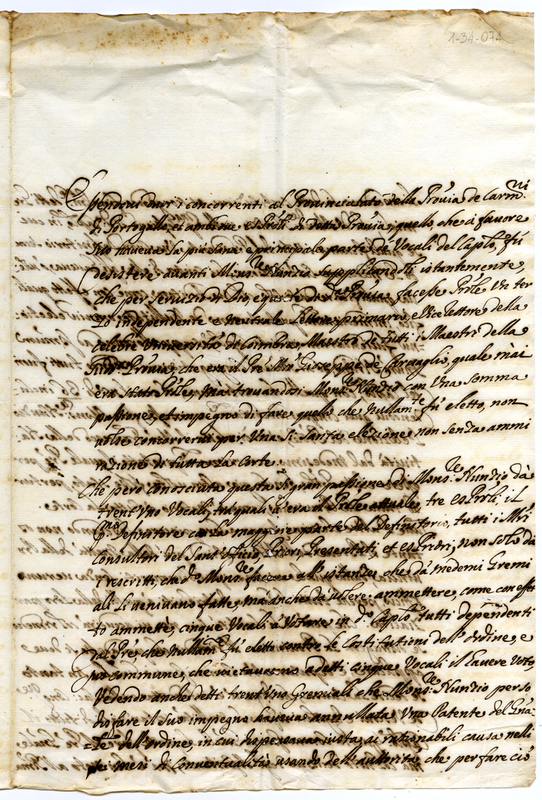 1-34-074
Essendovi due concorrenti al Provincialato della Prouia de Carmni
di Portogallo, et ambidue exProli di detta Prouia, quello, che in fauore
suo haueua la piu sana, e principale parte dei Vocali del Caplo, fù
a desistere auanti Monsre Nunzio supplicandoli istantemente,
che per seruizio di Dio, e pace della Prouia facesse Prole Un ter
zo independente e neutrale Lettore primario, e Vice Rettore della
celebre Università di Coimbra, Maestro di tutti i Maestri della
Prouia, che era il Pre Mro Giuseppe de Caruaglio, quale mai
era stato Prole, ma trouandosi Monsre Nunzio con Una somma
passione, et impegno di fare quello che nullamte fù eletto, non
uolse concorrere per Una sì santa elezione non senza ammi
razione di tutta La Corte.
Che però conosciuta questa sì gran passione di Monsre Nunzio da
trent'Uno Vocali, tra quali u'era il Prole attuale, tre exProli, il
Definitore con la maggiore parte del Definitorio, tutti i Mri
Consultori del Sant'Uffizio, Priori, Presentati, et exPrdri, non solo da
rescritti, che do Monsre faceua all'istanze che da medemi Gremi
ali Li ueniuano fatte, mà anche da uolere ammettere, come con effet
to ammette, cinque Vocali à Votare in do Caplo tutti dependenti
dal Pre, che nullamte fù eletto contro le Constitutioni dell'ordine, e
jus commune, che uietauano a detti cinque Vocali il hauere Voto,
Vedendo anche detti trent'Uno Gremiali che Monsre Nunzio per so
disfare il Suo impegno haueua annullata Una Patente del Gña
le dell'ordine, in cui dispensaua iusta, ac rationabili causa nelli
sei mesi di Conuentualità usando dell'autorità, che per fare ciò